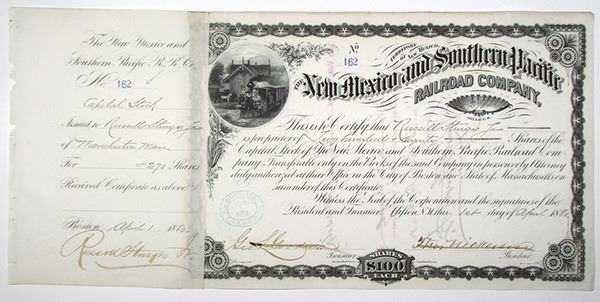 The New Mexico and
Southern Pacific R. R. Co
No. 162
Capital Stock
Issued to Russell Sturgis Jr
of Manchester Mass
For 270 Shares
Received Certificate as above
Boston April 1 1880
Russell Sturgis Jr
No
162
TERRITORY
OF NEW MEXICO
THE New Mexico and Southern Pacific
RAILROAD COMPANY.
SHARES
This is to Certify that Russell Sturgis Jr
is proprietor of Two hundred & Seventy Shares of the
Capital Stock of The New Mexico and Southern Pacific Railroad Com-
pany. Transferable only on the Books of the said Company in person or by Attorney
duly authorized at their Office in the City of Boston and State of Massachusetts on
surrender of this Certificate.
Witness the Seal of the Corporation and the signatures of the
President and Treasurer Office N.M. this 1st day of April 1880
Treasurer
President
SHARES
$100
EACH